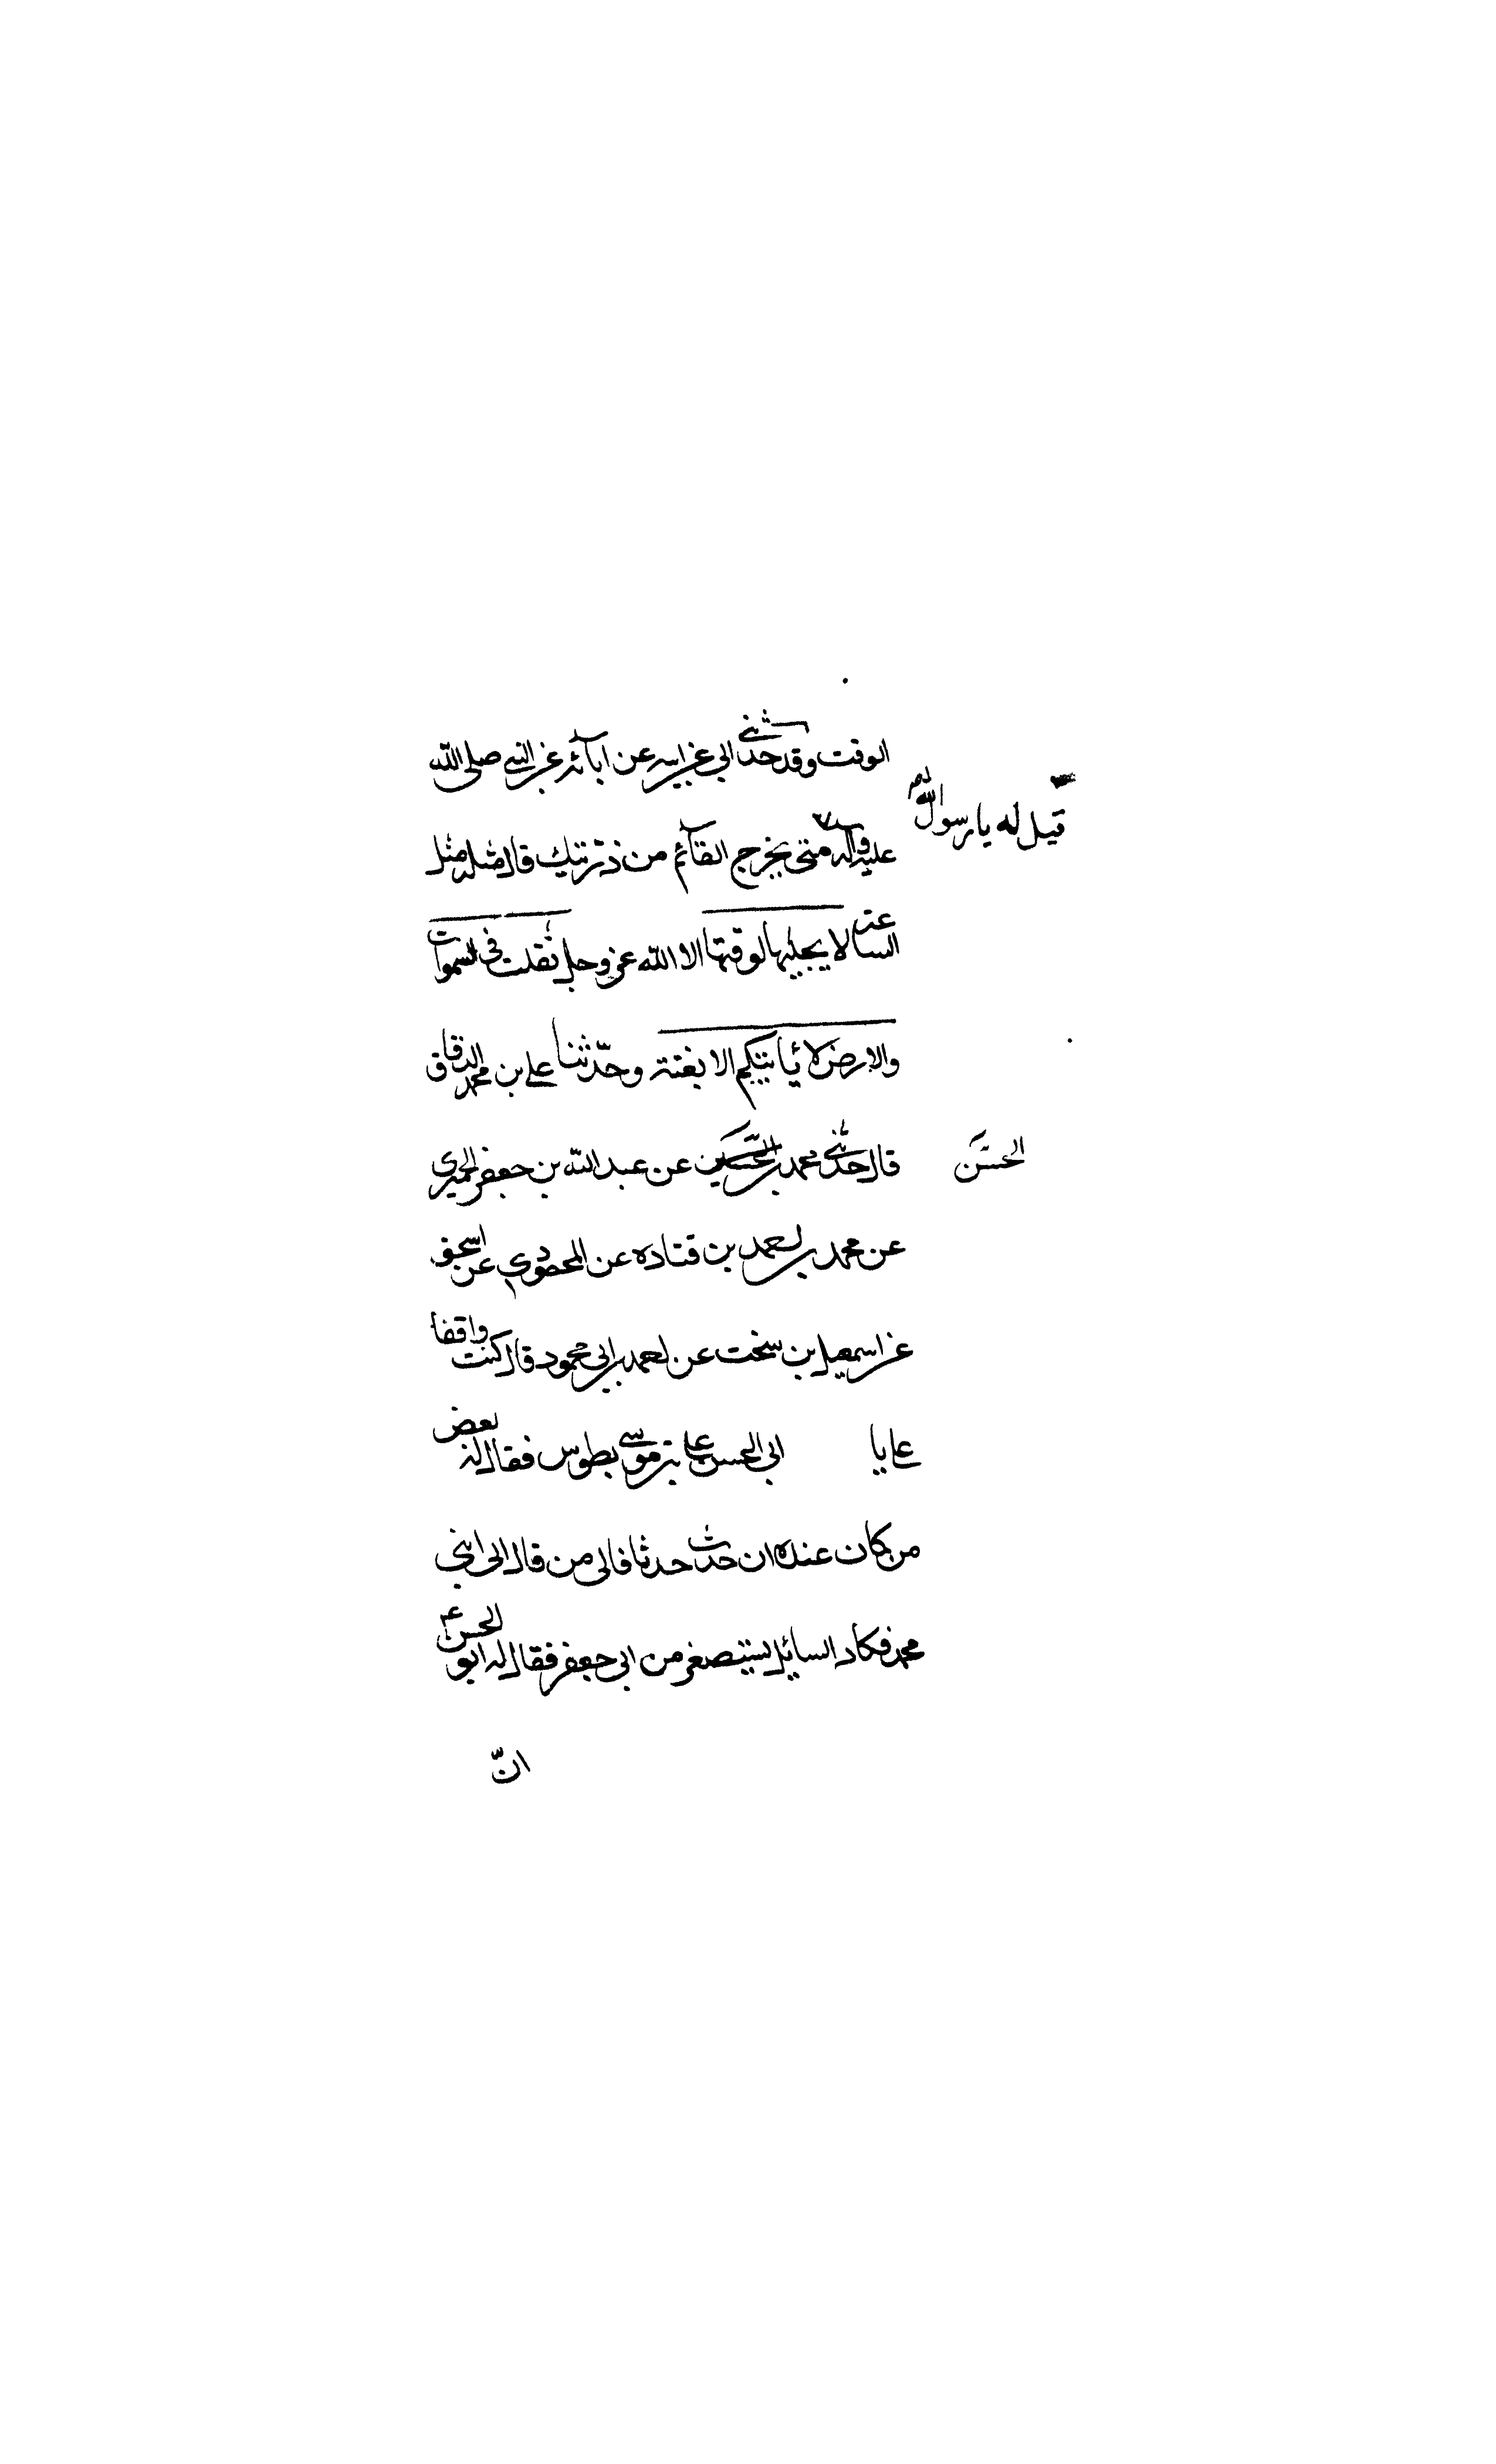 الوقت وقد حدثني ابي عن ابيه عن ابآئه عن النبي صلى الله
قيل له يا رسول الله
عليه وآله متى يخرج القآئم من ذريتك قال مثله مثل
الساعة لا يجليها لوقتها الا الله عز وجل ثقلت في السموات
والارض لا يأتيكم الا بغتة وحدثنا علي بن محمد الدقاق
قال حدثني محمد بن الحسين عن عبد الله بن جعفر الحميري
الحسن
عن محمد بن احمد بن قتاده عن المحمودي عن اسحق
عن اسمعيل بن سخت عن احمد بن ابي محمود قال كنت واقفا
على يا ابي الحسن على بن موسى بطوس فقال له بعض
من كان عنده ان حدث حدثا فالى من قال الى ابني
محمد فكاد السائل يستصغر من ابي جعفر فقال له ابو الحسن ع
انّ